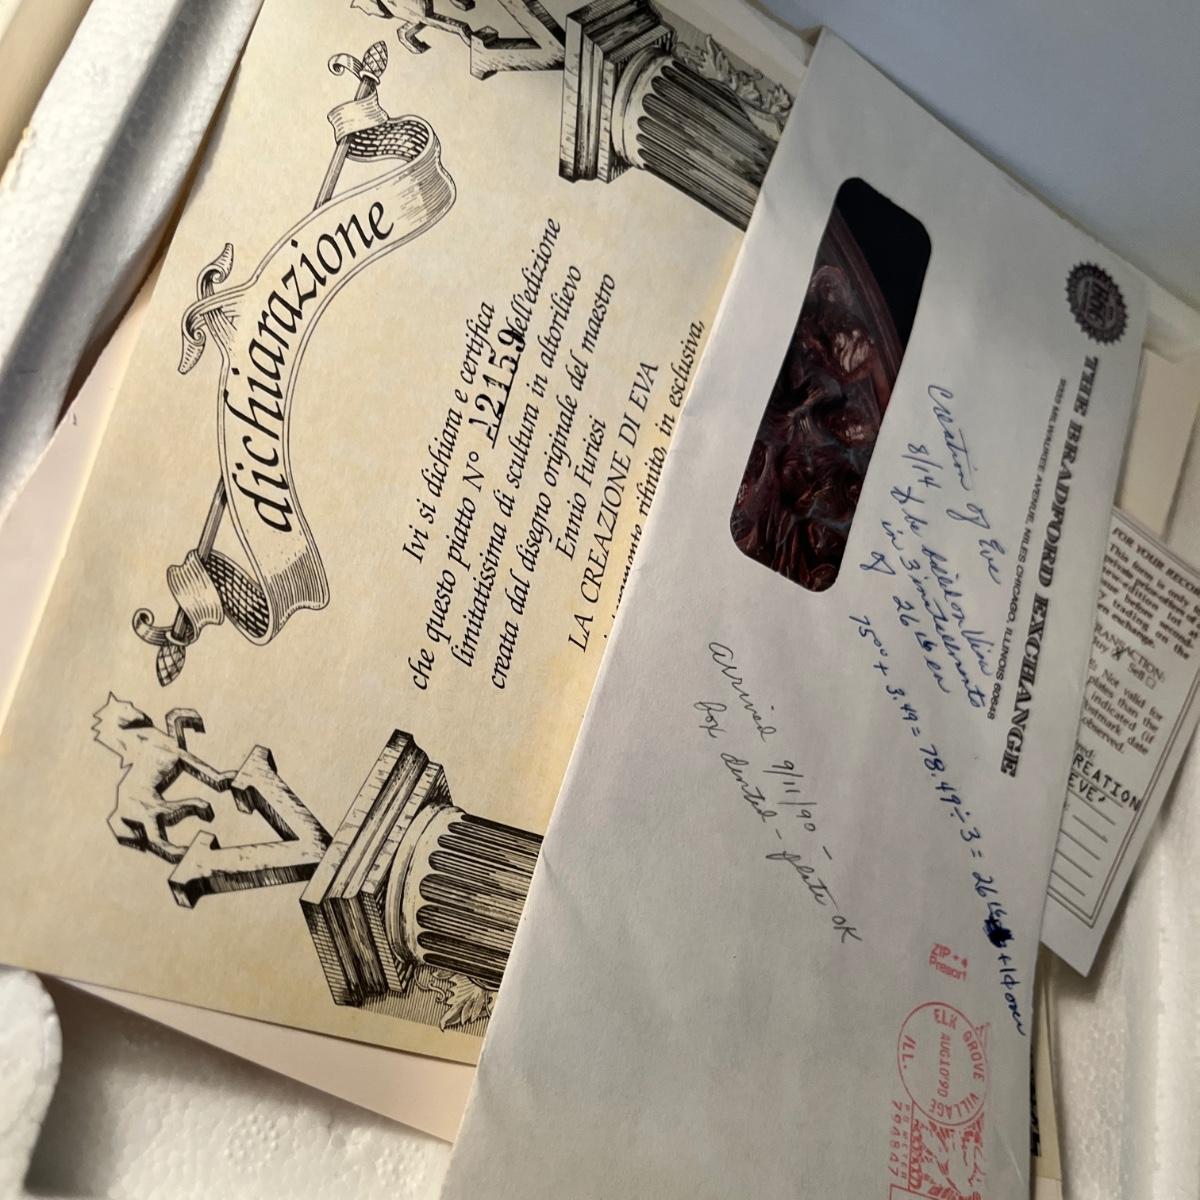 dichiarazione
Ivi si dichiara e certifica
che questo piatto N° 12159 dell'edizione
limitatissima di scultura in altorilievo
creata dal disegno originale del maestro
Ennio Furiesi
LA CREAZIONE DI EVA
rifinito, in esclusiva,
THE BRADFORD EXCHANGE
MILWAUKEE AVENUE, NILES CHICAGO, ILLINOIS 60648
Creation of Eve
8/14 to be billed on Visa
in 3 installments
of 26 16 ea
75⁰⁰ + 3.49 = 78.49 ÷ 3 = 26 16 + 1¢ over
arrived 9/11/90 -
box dented - plate OK
ZIP + 4
Presort
ELK GROVE VILLAGE
AUG10'90
ILL.
PB METER
798847
FOR YOUR RECOR
This form is only
private printed
Buy Sell
Not valid for
plates than the
indicated (if
postmark date
observed.
REATION
EVE'